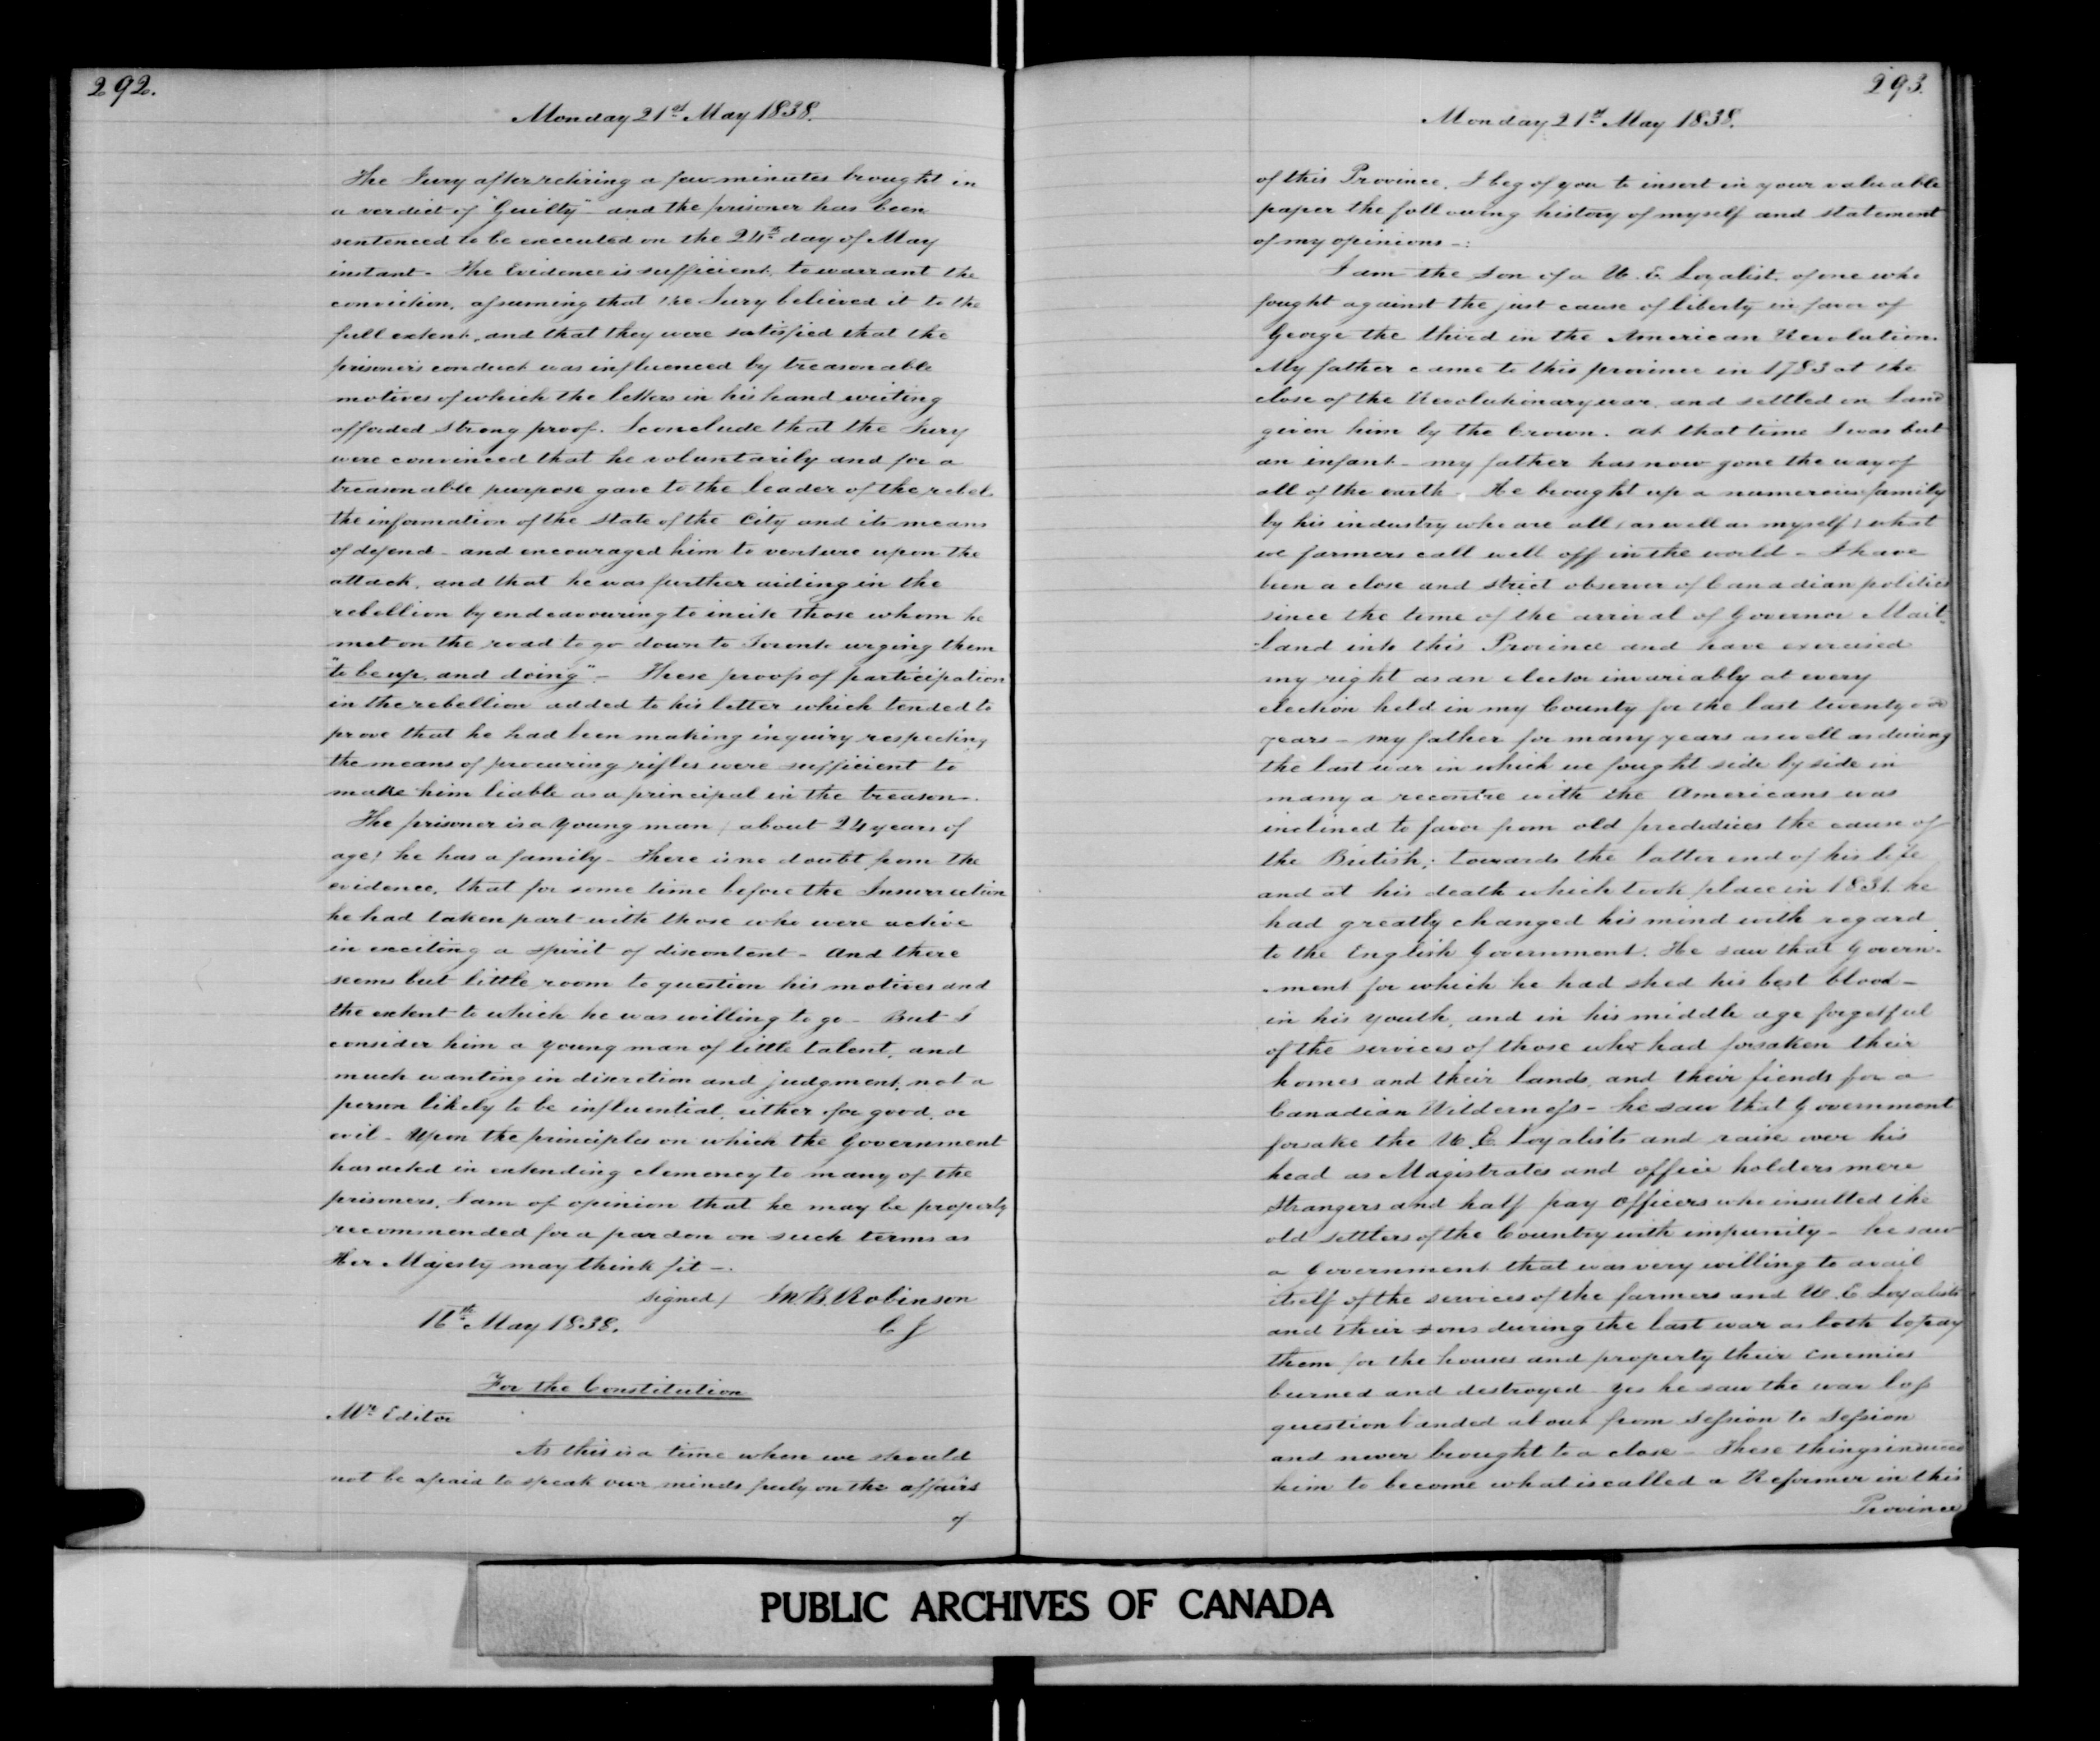 292.
Monday 21st May 1838.
The Jury after retiring a few minutes brought in
a verdict of "Guilty" and the prisoner has been
sentenced to be executed on the 24th day of May
instant - The Evidence is sufficient to warrant the
conviction, assuming that the Jury believed it to the
full extent, and that they were satisfied that the
prisoners conduct was influenced by treasonable
motives of which the letters in his hand writing
afforded strong proof. I conclude that the Jury
were convinced that he voluntarily and for a
treasonable purpose gave to the leader of the rebel.
the information of the state of the City and its means
of defend - and encouraged him to venture upon the
attack, and that he was further aiding in the
rebellion by endeavouring to incite those whom he
met on the road to go down to Toronto urging them
"to be up, and doing" - These proofs of participation
in the rebellion added to his letter which tended to
prove that he had been making inquiry respecting
the means of procuring rifles were sufficient to
make him liable as a principal in the treason -.
The prisoner is a young man (about 24 years of
age) he has a family - There is no doubt from the
evidence, that for some time before the Insurrection
he had taken part with those who were active
in exciting a spirit of discontent - And there
seems but little room to question his motives and
the extent to which he was willing to go - But I
consider him a young man of little talent, and
much wanting in discretion and judgment, not a
person likely to be influential, either for good, or
evil - Upon the principles on which the Government
has acted in extending clemency to many of the
prisoners, I am of opinion that he may be properly
recommended for a pardon on such terms as
Her Majesty may think fit -.
signed) Jno. B. Robinson
16th May 1838. C J
For the Constitution
Mr Editor
As this is a time when we should
not be afraid to speak our minds freely on the affairs
of
293.
Monday 21st May 1838.
of this Province, I beg of you to insert in your valuable
paper the following history of myself and statement
of my opinions -:
I am the son of a U. E. Loyalist, of one who
fought against the just cause of liberty in favor of
George the third in the American Revolution.
My father came to this province in 1783 at the
close of the Revolutionary war, and settled on Land
given him by the Crown. at that time I was but
an infant - my father has now gone the way of
all of the earth. He brought up a numerous family
by his industry who are all (as well as myself) what
we farmers call well off in the world - I have
been a close and strict observer of Canadian politics
since the time of the arrival of Governor Mait-
-land into this Province and have exercised
my right as an elector invariably at every
election held in my County for the last twenty odd
years - my father for many years as well as during
the last war in which we fought side by side in
many a recontre with the Americans was
inclined to favor from old predudices the cause of
the British; towards the latter end of his life
and at his death which took place in 1831 he
had greatly changed his mind with regard
to the English Government. He saw that Govern-
-ment for which he had shed his best blood -
in his youth, and in his middle age forgetful
of the services of those who had forsaken their
homes and their lands, and their fiends for a
Canadian Wilderness - he saw that Government
forsake the U. E. Loyalists and raise over his
head as Magistrates and office holders mere
Strangers and half pay Officers who insulted the
old settlers of the Country with impunity - he saw
a Government that was very willing to avail
itself of the services of the farmers and U. E. Loyalists
and their sons during the last war as loth to pay
them for the houses and property their enemies
burned and destroyed Yes he saw the war loss
question banded about from Session to Session
and never brought to a close - These things induced
him to become what is called a Reformer in this
Province
PUBLIC ARCHIVES OF CANADA